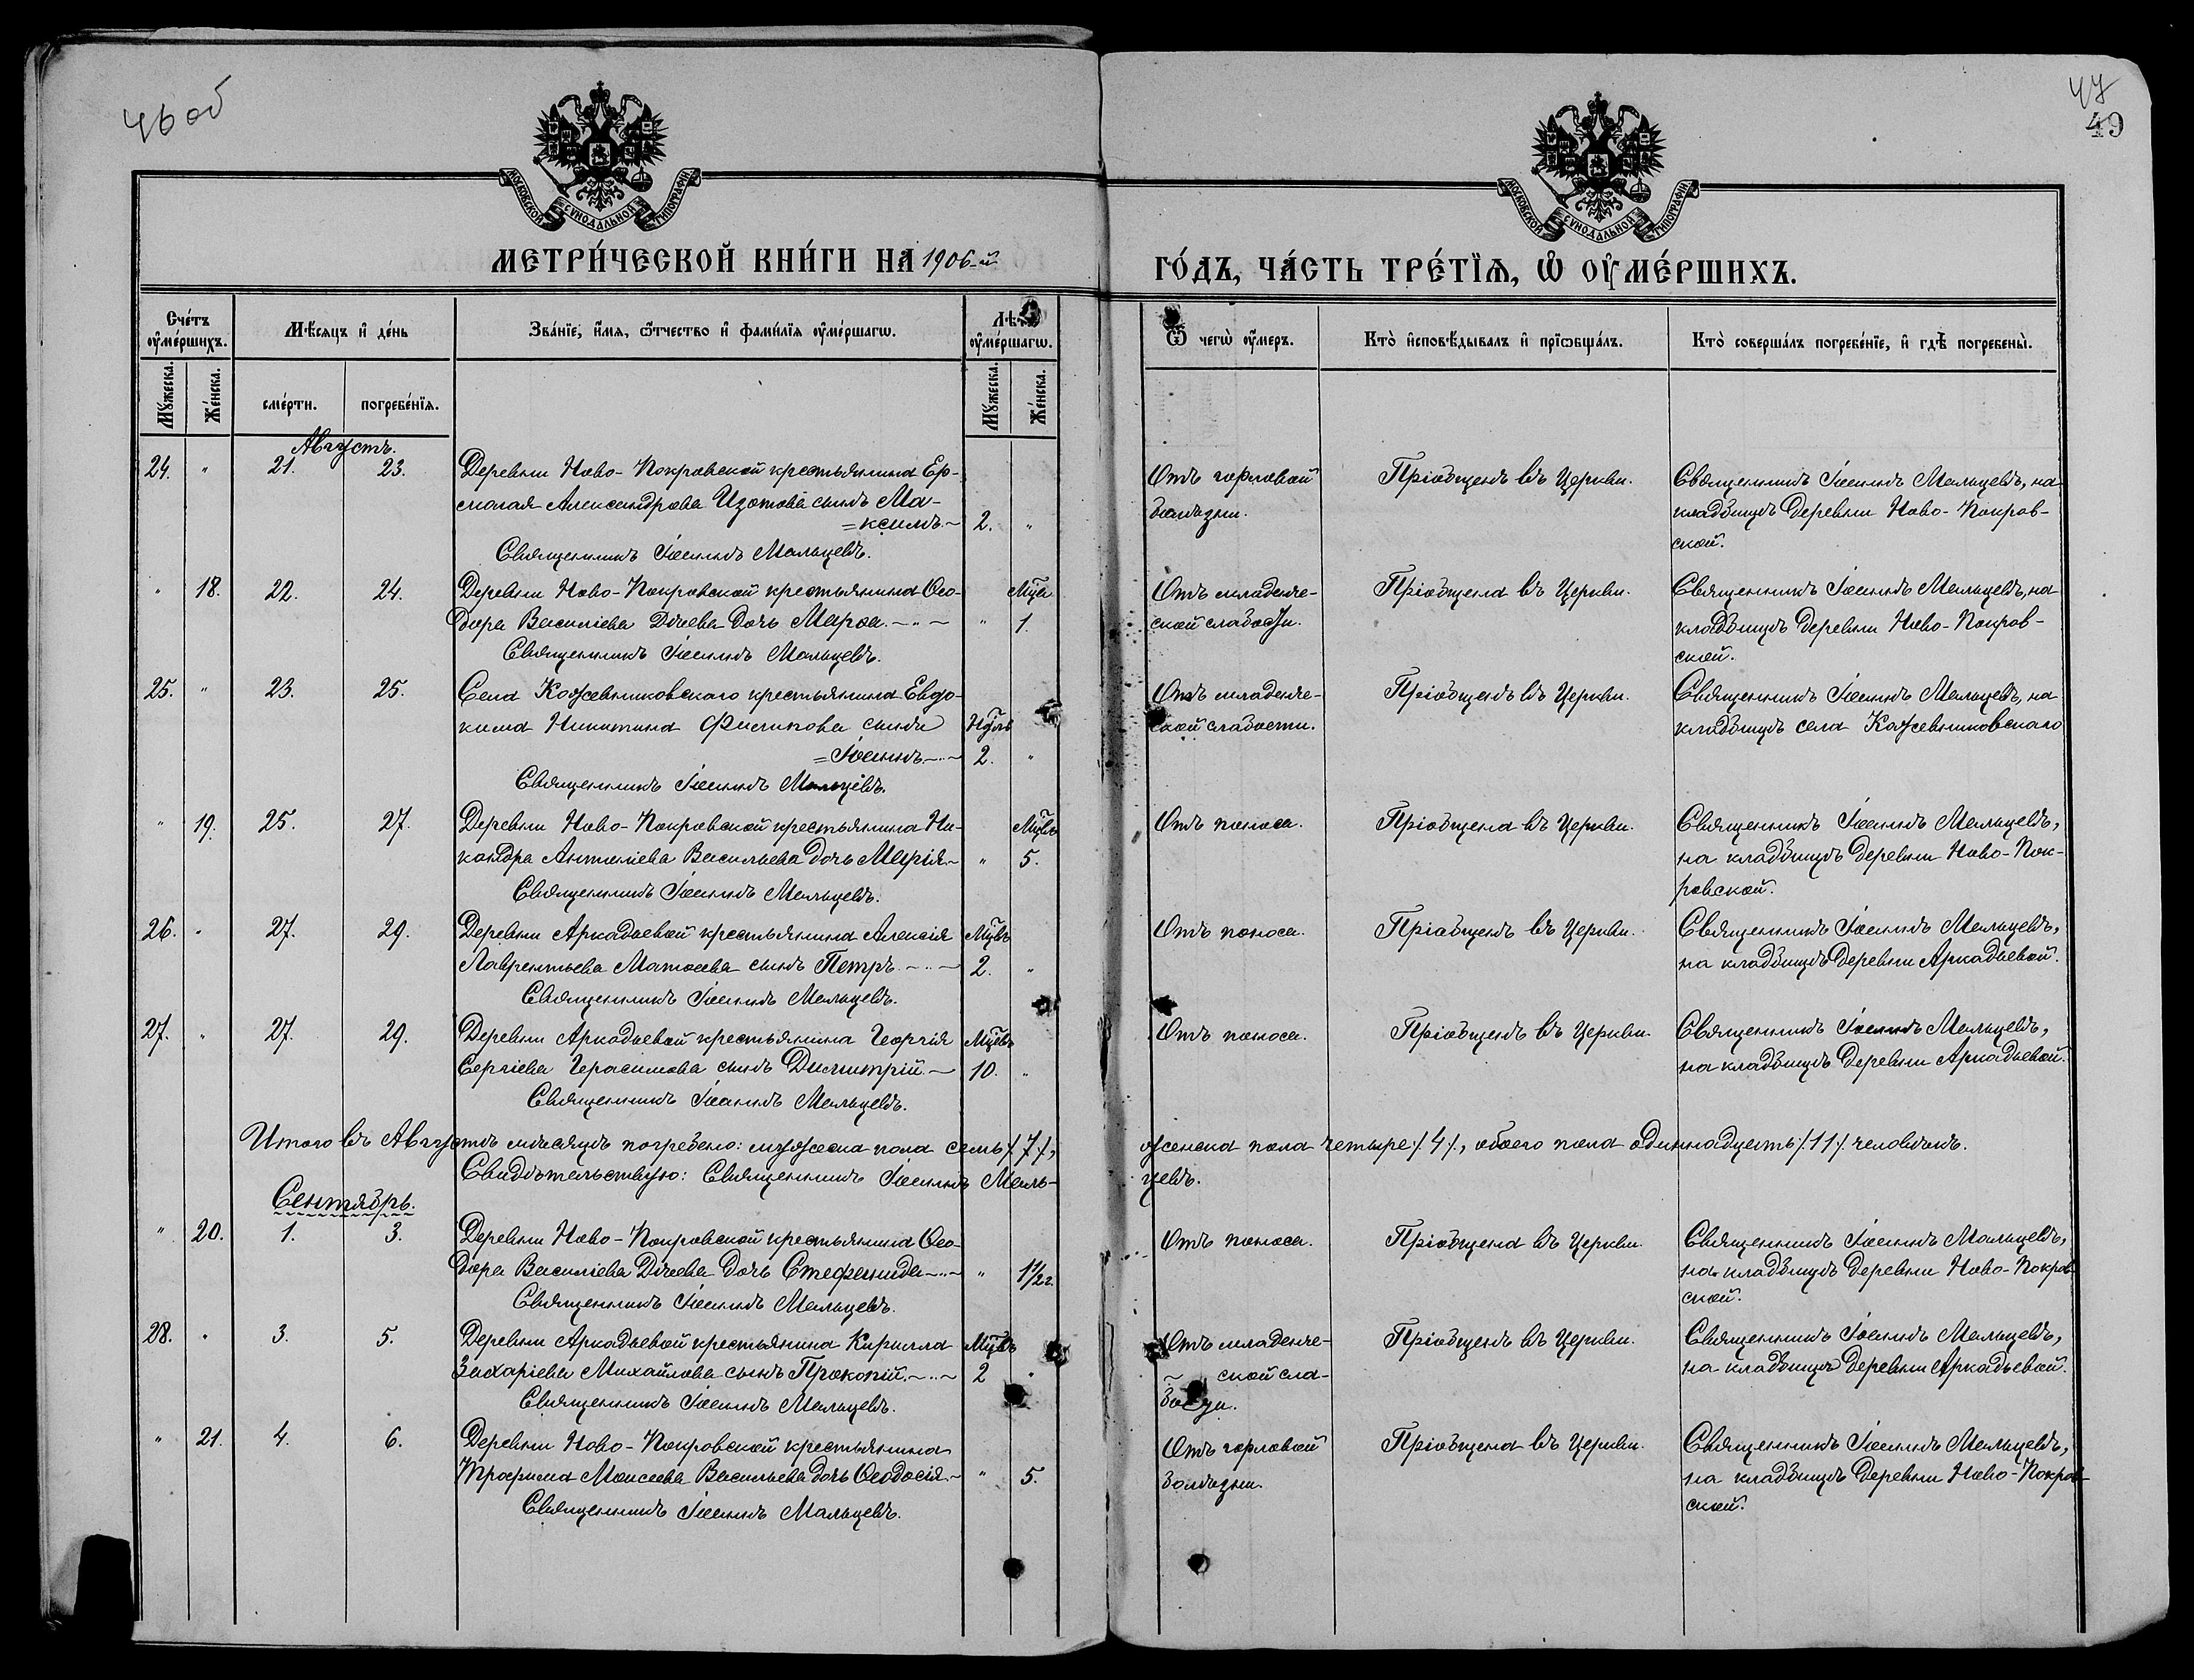 46 об
47
49
МОСКОВСКОЙ СѴНОДАЛЬНОЙ ТИПОГРАФІИ
МОСКОВСКОЙ СѴНОДАЛЬНОЙ ТИПОГРАФІИ
МЕТРИ́ЧЕСКОЙ КНИ́ГИ НА 1906-й
ГО́ДЪ, ЧА́СТЬ ТРЕ́ТЇѦ, Ѽ ОУМЕ́РШИХЪ.
Сче́тъ оуме́ршихъ.
Мѣ́сяцъ и де́нь
Зва́нїе, и́мя, ѻ́тчество и фами́лїя оуме́ршагѡ.
Лѣта оуме́ршагѡ.
Ѿ чегѡ̀ оу́меръ.
Кто̀ исповѣ́дывалъ и прїѡбща́лъ.
Кто̀ соверша́лъ погребе́нїе, и гдѣ̀ погребены̀.
Му́жеска. Же́нска. сме́рти. погребе́нїя. Му́жеска. Же́нска.
Августъ.
24. " 21. 23. Деревни Ново-Покровской крестьянина Ер-
молая Александрова Изотова сынъ Ма-
=ксимъ 2. "
Священникъ Іоаннъ Мальцевъ.
Отъ горловой
болѣзни.
Пріобщенъ въ Церкви.
Священникъ Іоаннъ Мальцевъ, на
кладбищѣ деревни Ново-Покров-
ской.
" 18. 22. 24. Деревни Ново-Покровской крестьянина Ѳео-
дора Василіева дочь Марѳа " 1.
Священникъ Іоаннъ Мальцевъ.
Отъ младенче-
ской слабости.
Пріобщена въ Церкви.
Священникъ Іоаннъ Мальцевъ, на
кладбищѣ деревни Ново-Покров-
ской.
25. " 23. 25. Села Кожевниковскаго крестьянина Евдо-
кима Никитина сынъ
=Іоаннъ 2. "
Священникъ Іоаннъ Мальцевъ.
Отъ младенче-
ской слабости.
Пріобщенъ въ Церкви.
Священникъ Іоаннъ Мальцевъ, на
кладбищѣ села Кожевниковскаго
" 19. 25. 27. Деревни Ново-Покровской крестьянина Ни-
кандра Антоніева Васильева дочь Марія " 5.
Священникъ Іоаннъ Мальцевъ.
Отъ поноса.
Пріобщена въ Церкви.
Священникъ Іоаннъ Мальцевъ,
на кладбищѣ деревни Ново-Пок-
ровской.
26. " 27. 29. Деревни Аркадьевой крестьянина Алексія
Лаврентьева Матѳеева сынъ Петръ 2. "
Священникъ Іоаннъ Мальцевъ.
Отъ поноса.
Пріобщенъ въ Церкви.
Священникъ Іоаннъ Мальцевъ,
на кладбищѣ деревни Аркадьевой.
27. " 27. 29. Деревни Аркадьевой крестьянина Георгія
Сергіева Герасимова сынъ Димитрій 10. "
Священникъ Іоаннъ Мальцевъ.
Отъ поноса.
Пріобщенъ въ Церкви.
Священникъ Іоаннъ Мальцевъ,
на кладбищѣ деревни Аркадьевой.
Итого въ Августѣ мѣсяцѣ погребено: мужеска пола семь /.7./, женска пола четыре /.4./, обоего пола одиннадцать /.11./ человѣкъ.
Свидѣтельствую: Священникъ Іоаннъ Маль-
цевъ.
Сентябрь.
" 20. 1. 3. Деревни Ново-Покровской крестьянина Ѳео-
дора Василіева дочь Стефанида " 1 1/2 г.
Священникъ Іоаннъ Мальцевъ.
Отъ поноса.
Пріобщена въ Церкви.
Священникъ Іоаннъ Мальцевъ,
на кладбищѣ деревни Ново-Покров-
ской.
28. " 3. 5. Деревни Аркадьевой крестьянина Кирилла
Захаріева Михайлова сынъ Прокопій 2 "
Священникъ Іоаннъ Мальцевъ.
Отъ младенче-
ской сла-
бости.
Пріобщенъ въ Церкви.
Священникъ Іоаннъ Мальцевъ,
на кладбищѣ деревни Аркадьевой.
" 21. 4. 6. Деревни Ново-Покровской крестьянина
Трофима Моисеева Васильева дочь Ѳеодосія " 5.
Священникъ Іоаннъ Мальцевъ.
Отъ горловой
болѣзни.
Пріобщена въ Церкви.
Священникъ Іоаннъ Мальцевъ,
на кладбищѣ деревни Ново-Покров-
ской.